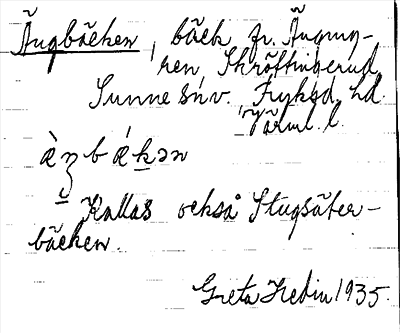 Ängbäcken, bäck fr. Ängmy-
ren, Skröttingerud,
Sunne snv. Fryksd. hd.
Värml. l.
Kallas också Stugsäter-
bäcken.
Greta Hedin 1935.